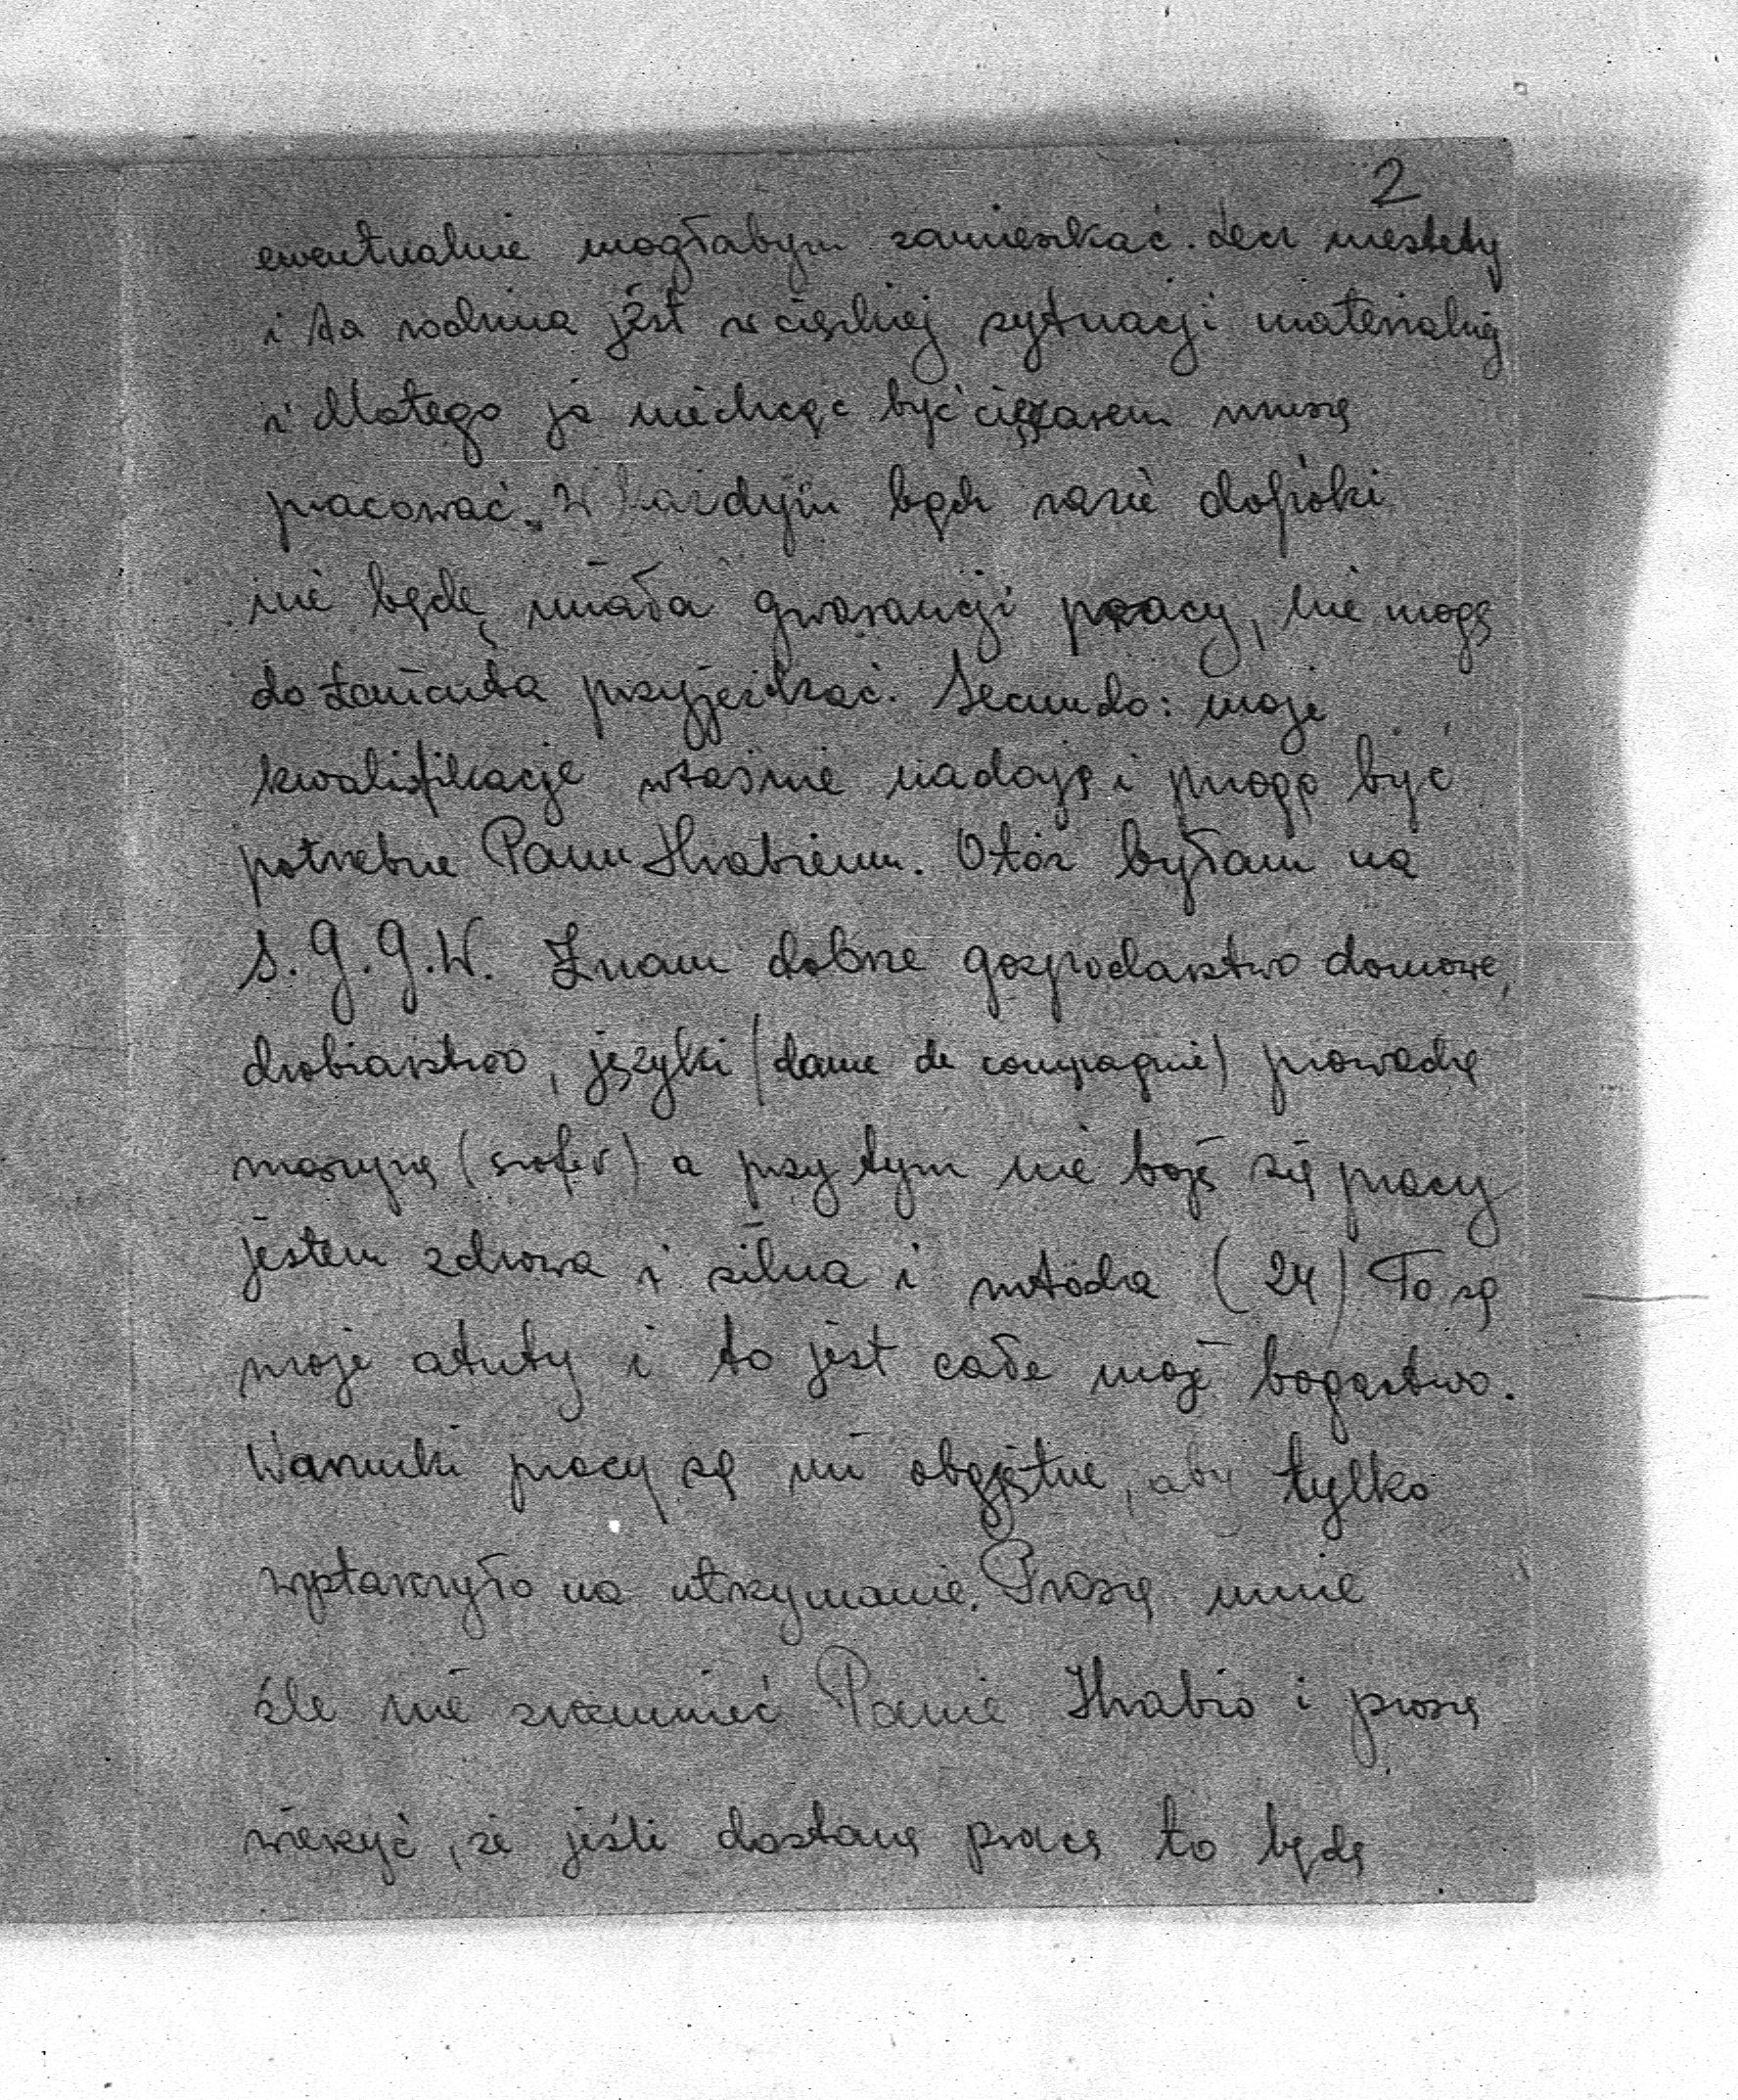 2
ewentualnie mogłabym zamieszkać. Lecz niestety
i ta rodzina jest w ciężkiej sytuacji materialnej
i dlatego ja niechcąc być ciężarem muszę
pracować. W każdym bądź razie dopóki
nie będę miała gwarancji pracy, nie mogę
do Łańcuta przyjechać. Secundo: moje
kwalifikacje właśnie nadają i mogą być
potrzebne Panu Hrabiemu. Otóż byłam na
S.G.G.W. Znam dobrze gospodarstwo domowe,
drobiarstwo, języki (dame de compagnie) prowadzę
maszynę (szofer) a przy tym nie boję się pracy
jestem zdrowa i silna i młoda (24) To są
moje atuty i to jest całe moje bogactwo.
Warunki pracy są mi obojętne, aby tylko
wystarczyło na utrzymanie. Proszę mnie
źle nie zrozumieć Panie Hrabio i proszę
wierzyć, że jeśli dostanę pracę to będę